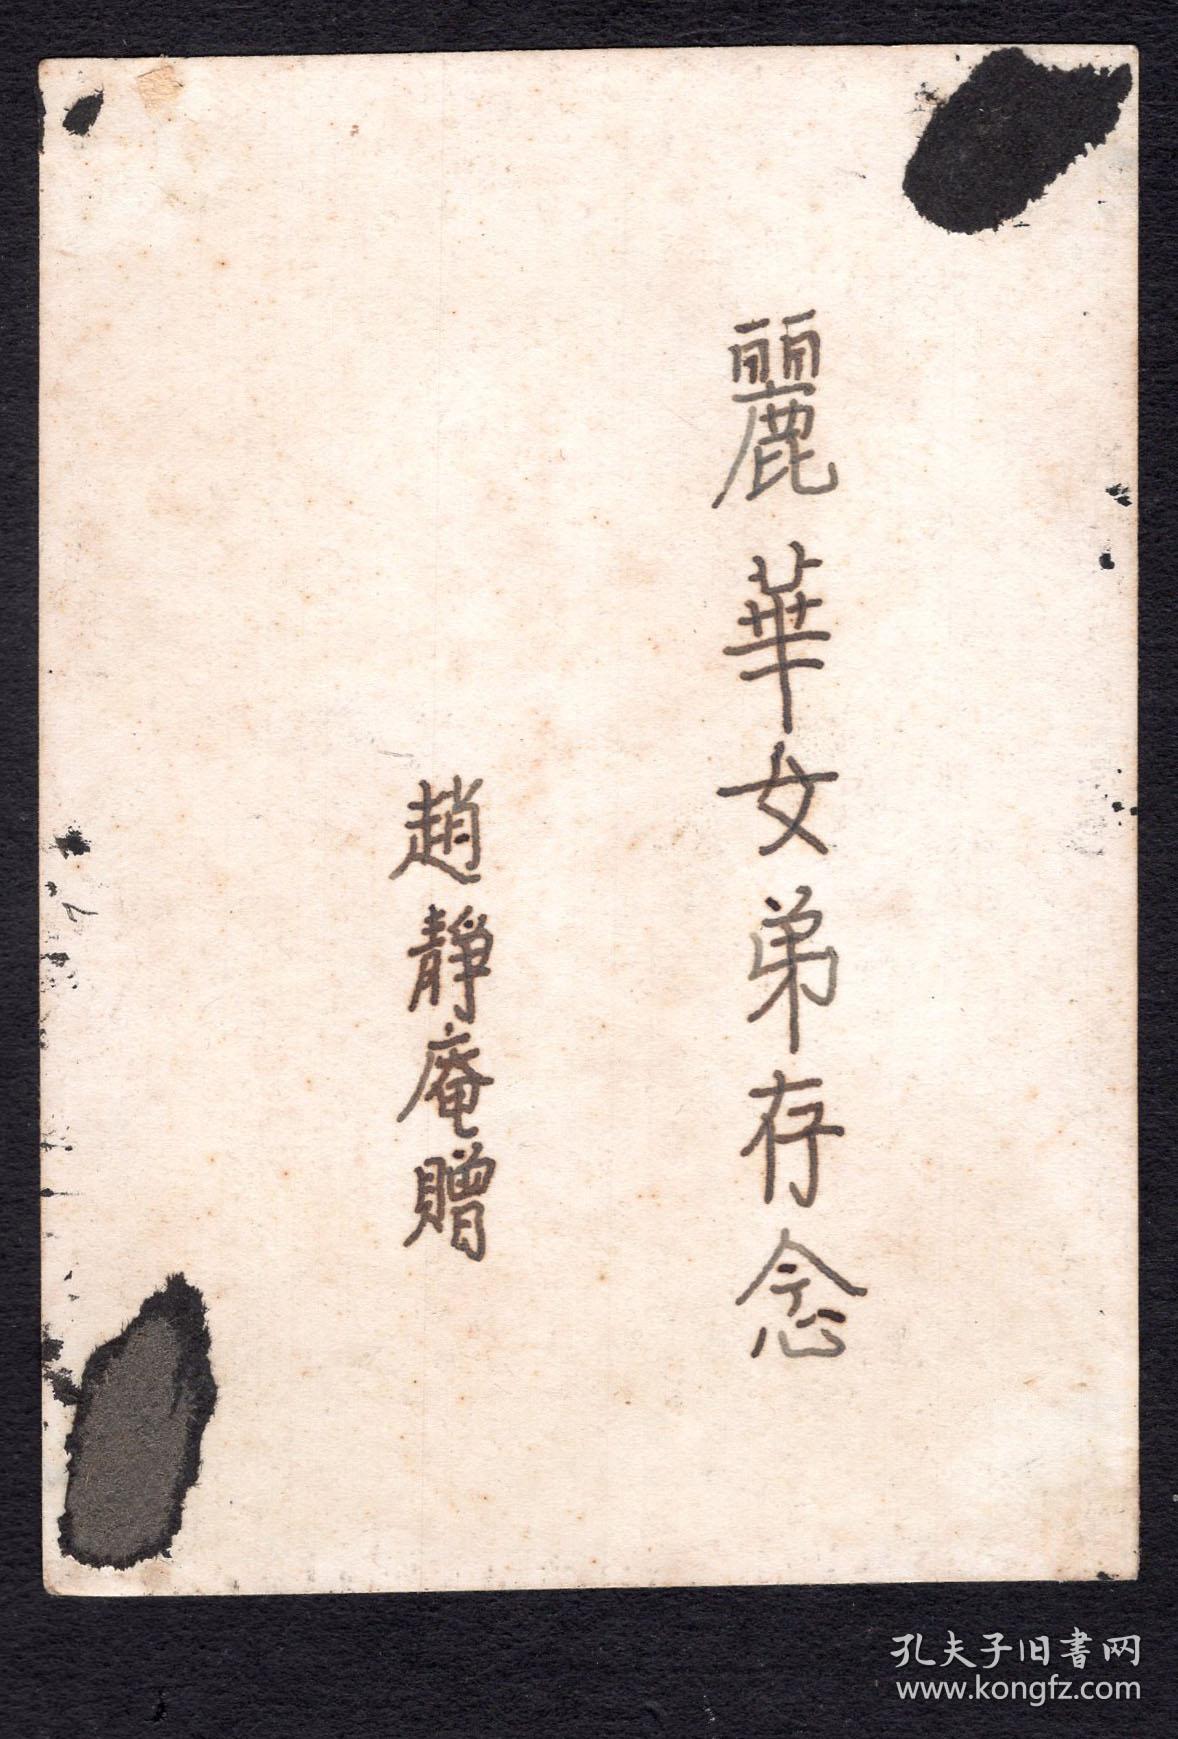 麗華女弟存念
趙靜庵贈
孔夫子旧書网
www.kongfz.com